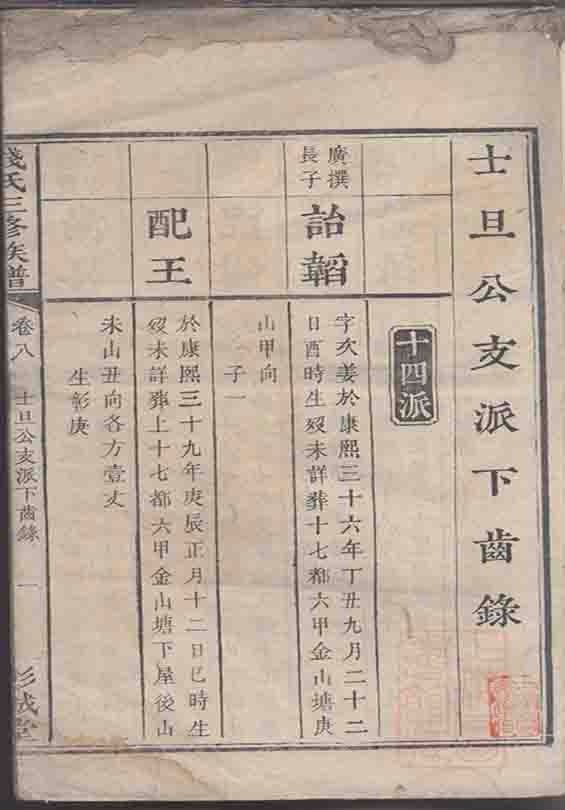 士旦公支派下齒錄
十四派
廣撰
長子
詒韜
字次姜於康熙三十六年丁丑九月二十二
日酉時生歿未詳葬十七都六甲金山塘庚
山甲向
子一
配王
於康熙三十九年庚辰正月十二日巳時生
歿未詳葬上十七都六甲金山塘下屋後山
未山丑向各方壹丈
生彰庚
錢氏三修族譜
卷八
士旦公支派下齒錄
一
彭城堂